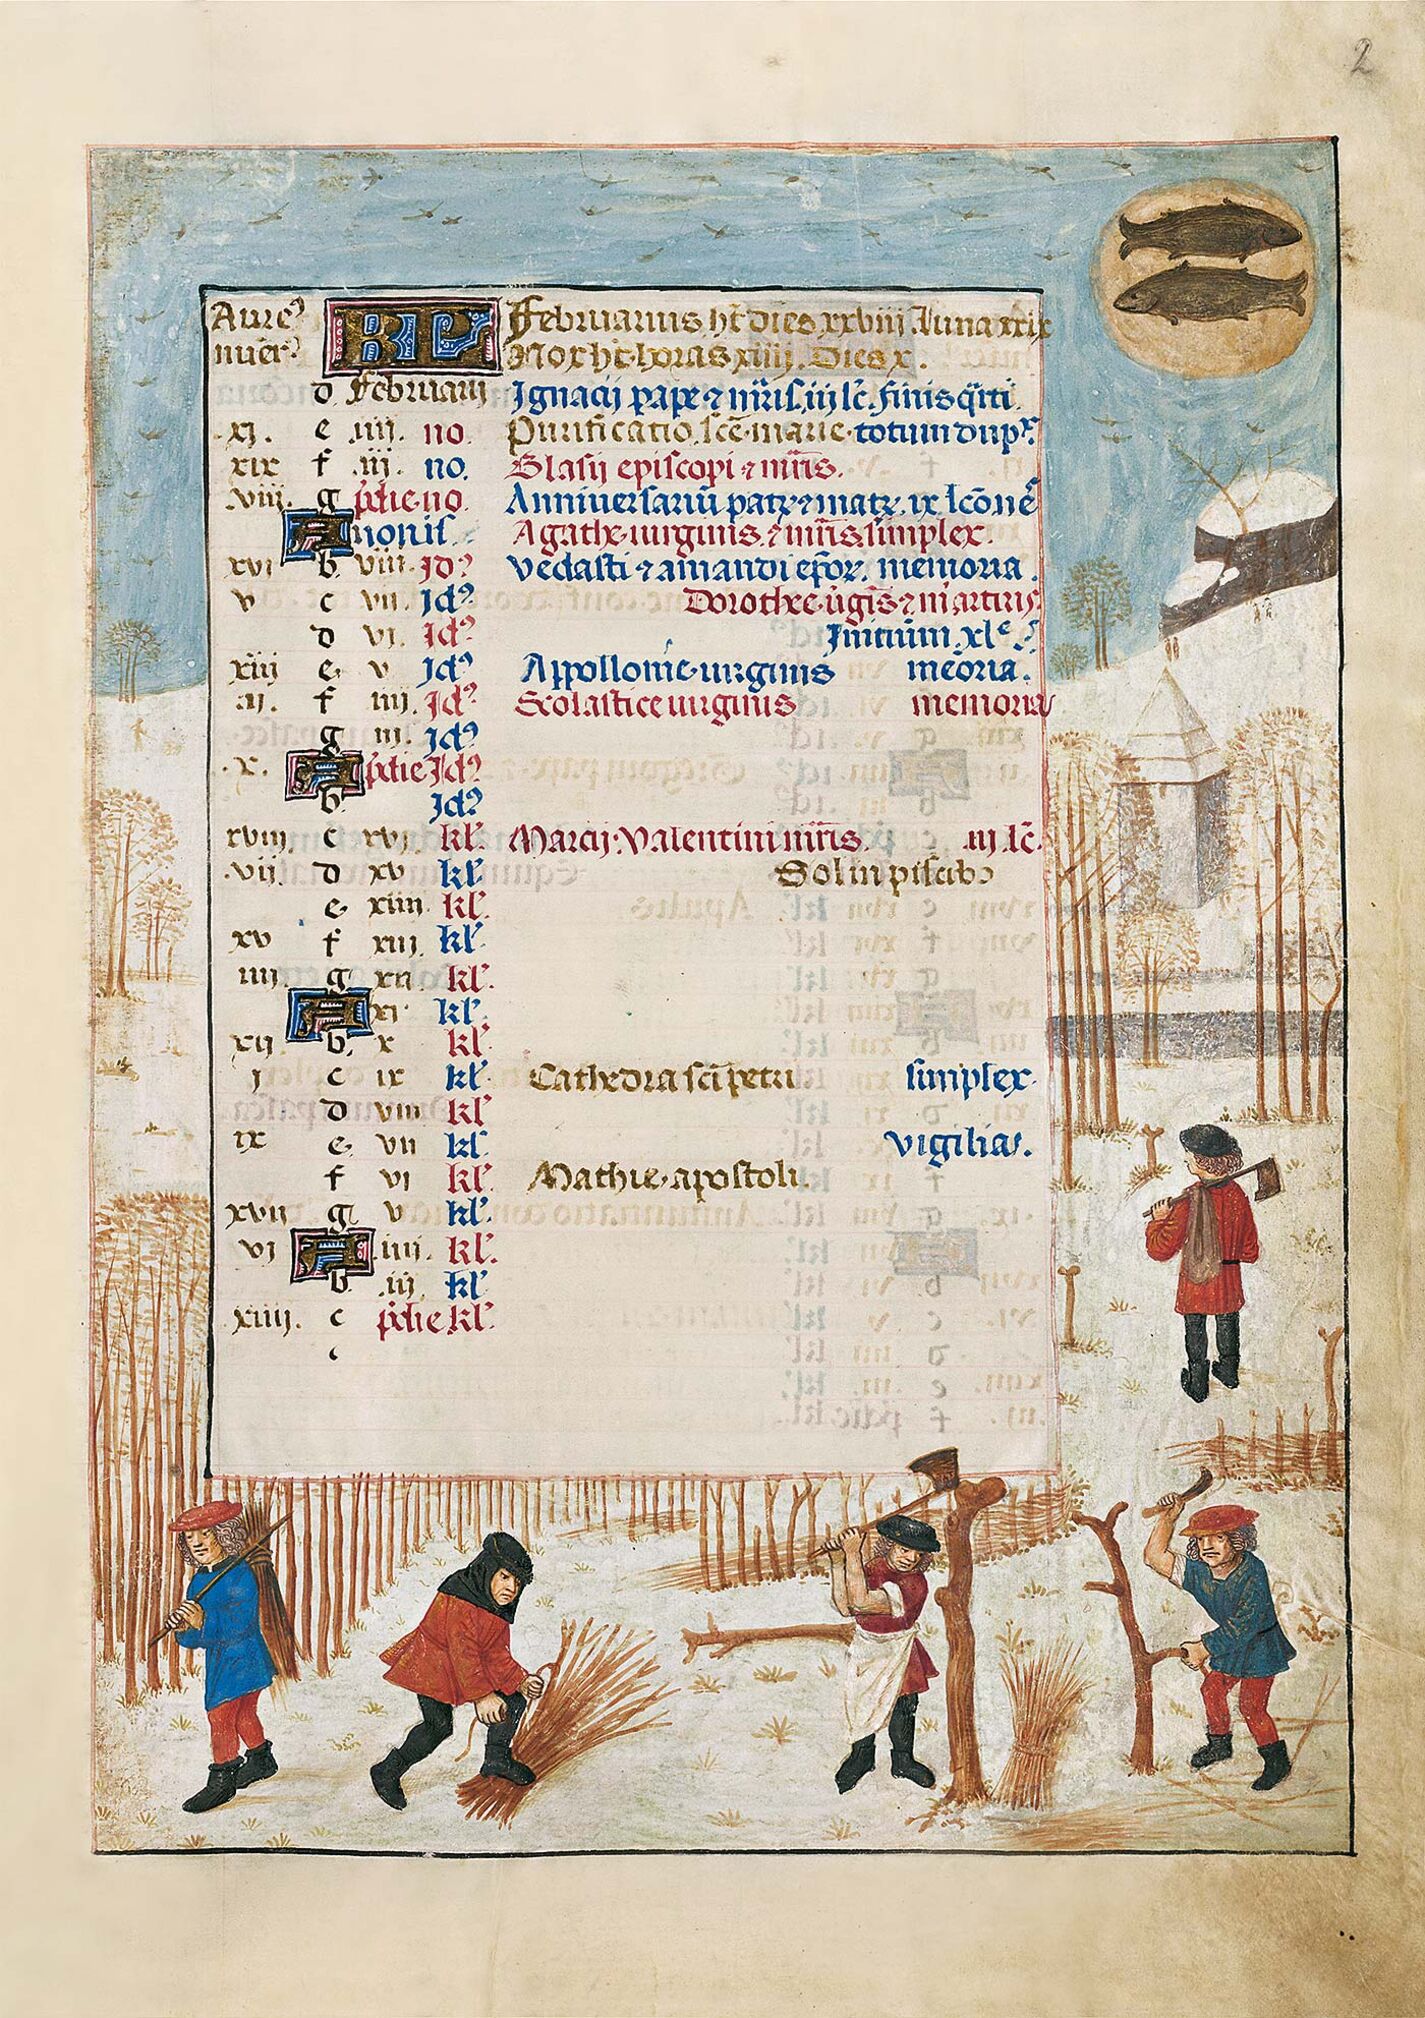 2
Aure⁹ KL Februarius ht dies xxviii luna xxix
nuer⁹ Nox ht horas xiiii. Dies x.
d februarii Ignacii pape ⁊ mris. iii lc. finis
.xi. e .iiii. no. Purificatio sce marie totum dup
xix f .iii. no. Blasii episcopi ⁊ mris.
.viii. g pdie no. Anniversariu patr ⁊ matr ix lcone
A nonis. Agathe virginis ⁊ mris simplex.
xvi b. viii. Id⁹ Vedasti ⁊ amandi epor. memoria.
v c vii. Id⁹ Dorothee vgis ⁊ martiris
d vi. Id⁹ Initium. xl
xiii e. v Id⁹ Appollonie virginis meoria.
.ii. f iiii. Id⁹ Scolastice virginis memoria
g iii. Id⁹
.x. A pdie Id⁹
b. Id⁹
xviii c xvi kl' Marcii. Valentini mris. iii lc.
.vii. d xv kl' Sol in piscib⁹
e. xiiii kl'
xv f xiii. kl'
iiii. g xii kl'
A xi kl'
xii b. x kl'
i c ix kl' Cathedra sci petri simplex.
d viii kl'
ix e. vii kl' vigilia.
f vi kl' Mathie apostoli.
xvii g v kl'
vi A .iiii. kl'
b .iii. kl'
xiiii. c pdie kl'